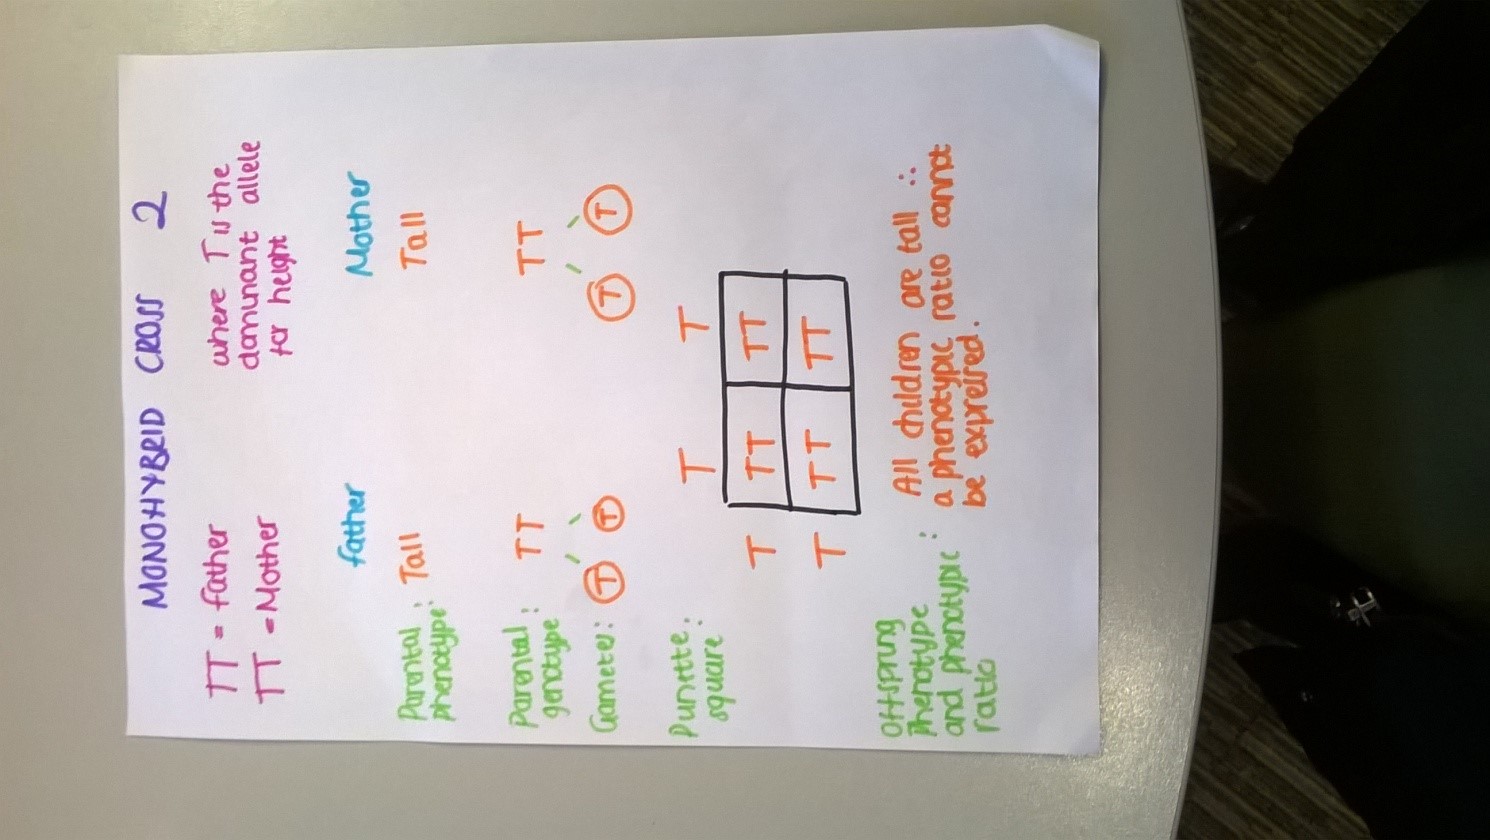 MONOHYBRID CROSS 2
TT = father
TT = Mother
where T is the
dominant allele
for height
father Mother
Parental
phenotype: Tall Tall
Parental
genotype: TT TT
Gametes: T T T T
Punitte
square:
T T
T TT TT
T TT TT
Offspring
Phenotype
and phenotypic:
ratio
All children are tall ∴
a phenotypic ratio cannot
be expressed.